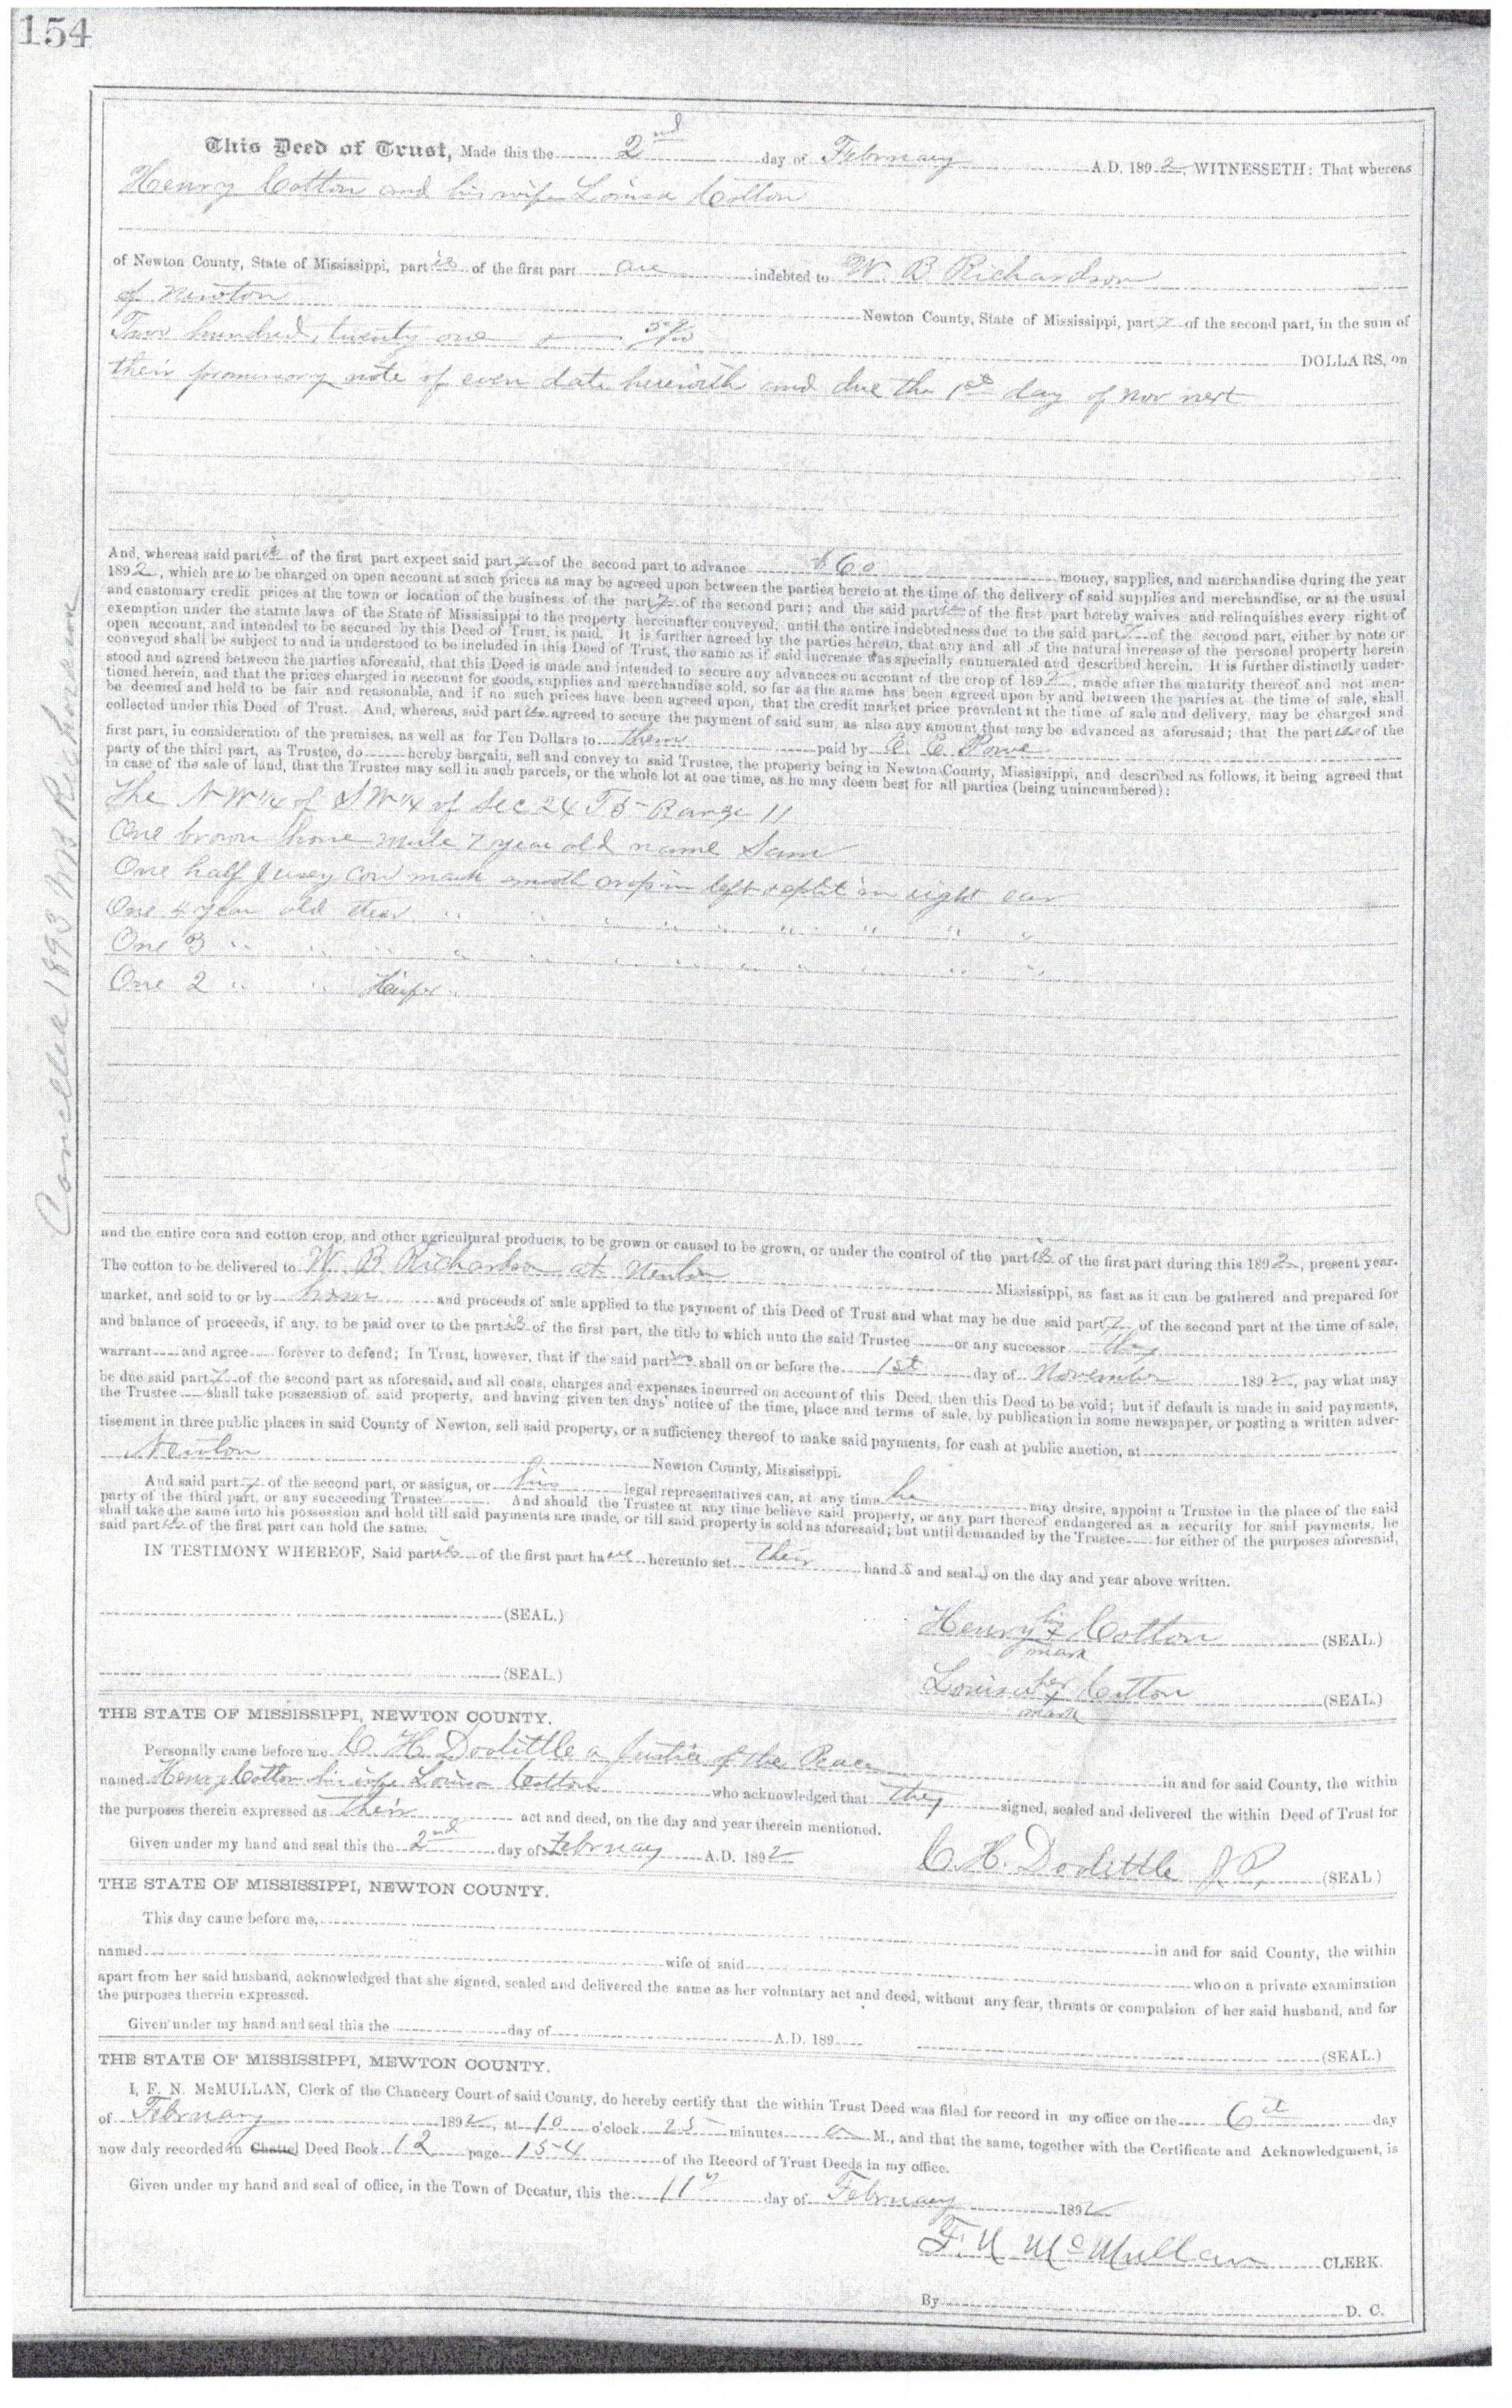 154
This Deed of Trust, Made this the 2nd day of February A.D. 1892, WITNESSETH: That whereas
Henry Cotton and his wife Louisa Cotton
of Newton County, State of Mississippi, parties of the first part are indebted to W. B. Richardson
of Newton Newton County, State of Mississippi, party of the second part, in the sum of
Two hundred, twenty one DOLLARS, on
their promissory note of even date herewith and due the 1st day of Nov next
And, whereas said parties of the first part expect said party of the second part to advance $60 money, supplies, and merchandise during the year
1892, which are to be charged on open account at such prices as may be agreed upon between the parties hereto at the time of the delivery of said supplies and merchandise, or at the usual
and customary credit prices at the town or location of the business of the party of the second part; and the said parties of the first part hereby waives and relinquishes every right of
exemption under the statute laws of the State of Mississippi to the property hereinafter conveyed, until the entire indebtedness due to the said party of the second part, either by note or
open account, and intended to be secured by this Deed of Trust, is paid. It is further agreed by the parties hereto, that any and all of the natural increase of the personal property herein
conveyed shall be subject to and is understood to be included in this Deed of Trust, the same as if said increase was specially enumerated and described herein. It is further distinctly under-
stood and agreed between the parties aforesaid, that this Deed is made and intended to secure any advances on account of the crop of 1892, made after the maturity thereof and not men-
tioned herein, and that the prices charged in account for goods, supplies and merchandise sold, so far as the same has been agreed upon by and between the parties at the time of sale, shall
be deemed and held to be fair and reasonable, and if no such prices have been agreed upon, that the credit market price prevalent at the time of sale and delivery, may be charged and
collected under this Deed of Trust. And, whereas, said parties agreed to secure the payment of said sum, as also any amount that may be advanced as aforesaid; that the parties of the
first part, in consideration of the premises, as well as for Ten Dollars to them paid by C. C. Powe
party of the third part, as Trustee, do hereby bargain, sell and convey to said Trustee, the property being in Newton County, Mississippi, and described as follows, it being agreed that
in case of the sale of land, that the Trustee may sell in such parcels, or the whole lot at one time, as he may deem best for all parties (being unincumbered):
The NW¼ of SW¼ of Sec 24 T 5 Range 11
One brown horse mule 7 year old name Sam
One half Jersey Cow mark smooth crop in left & split in right ear
One 4 year old steer " " " " " " " " " "
One 3 " " " " " " " " " " " "
One 2 " " Heifer "
and the entire corn and cotton crop, and other agricultural products, to be grown or caused to be grown, or under the control of the parties of the first part during this 1892, present year.
The cotton to be delivered to W. B. Richardson at Newton Mississippi, as fast as it can be gathered and prepared for
market, and sold to or by him and proceeds of sale applied to the payment of this Deed of Trust and what may be due said party of the second part at the time of sale,
and balance of proceeds, if any, to be paid over to the parties of the first part, the title to which unto the said Trustee or any successor they
warrant and agree forever to defend; In Trust, however, that if the said parties shall on or before the 1st day of November 1892, pay what may
be due said party of the second part as aforesaid, and all costs, charges and expenses incurred on account of this Deed, then this Deed to be void; but if default is made in said payments,
the Trustee shall take possession of said property, and having given ten days' notice of the time, place and terms of sale, by publication in some newspaper, or posting a written adver-
tisement in three public places in said County of Newton, sell said property, or a sufficiency thereof to make said payments, for cash at public auction, at
Newton Newton County, Mississippi.
And said party of the second part, or assigns, or his legal representatives can, at any time he may desire, appoint a Trustee in the place of the said
party of the third part, or any succeeding Trustee. And should the Trustee at any time believe said property, or any part thereof endangered as a security for said payments, he
shall take the same into his possession and hold till said payments are made, or till said property is sold as aforesaid; but until demanded by the Trustee for either of the purposes aforesaid,
said parties of the first part can hold the same.
IN TESTIMONY WHEREOF, Said parties of the first part have hereunto set their hands and seals on the day and year above written.
(SEAL.) Henry his x mark Cotton (SEAL.)
(SEAL.) Louisa her x mark Cotton (SEAL.)
THE STATE OF MISSISSIPPI, NEWTON COUNTY.
Personally came before me C. H. Doolittle a Justice of the Peace in and for said County, the within
named Henry Cotton his wife Louisa Cotton who acknowledged that they signed, sealed and delivered the within Deed of Trust for
the purposes therein expressed as their act and deed, on the day and year therein mentioned.
Given under my hand and seal this the 2nd day of February A.D. 1892
C. H. Doolittle J.P. (SEAL)
THE STATE OF MISSISSIPPI, NEWTON COUNTY.
This day came before me,
in and for said County, the within
named wife of said who on a private examination
apart from her said husband, acknowledged that she signed, sealed and delivered the same as her voluntary act and deed, without any fear, threats or compulsion of her said husband, and for
the purposes therein expressed.
Given under my hand and seal this the day of A.D. 189
(SEAL.)
THE STATE OF MISSISSIPPI, MEWTON COUNTY.
I, F. N. McMULLAN, Clerk of the Chancery Court of said County, do hereby certify that the within Trust Deed was filed for record in my office on the 6th day
of February 1892, at 10 o'clock 25 minutes a M., and that the same, together with the Certificate and Acknowledgment, is
now duly recorded in Chattel Deed Book 12 page 154 of the Record of Trust Deeds in my office.
Given under my hand and seal of office, in the Town of Decatur, this the 11th day of February 1892
F. N McMullan CLERK.
By D. C.
Cancelled 1893 W B Richardson